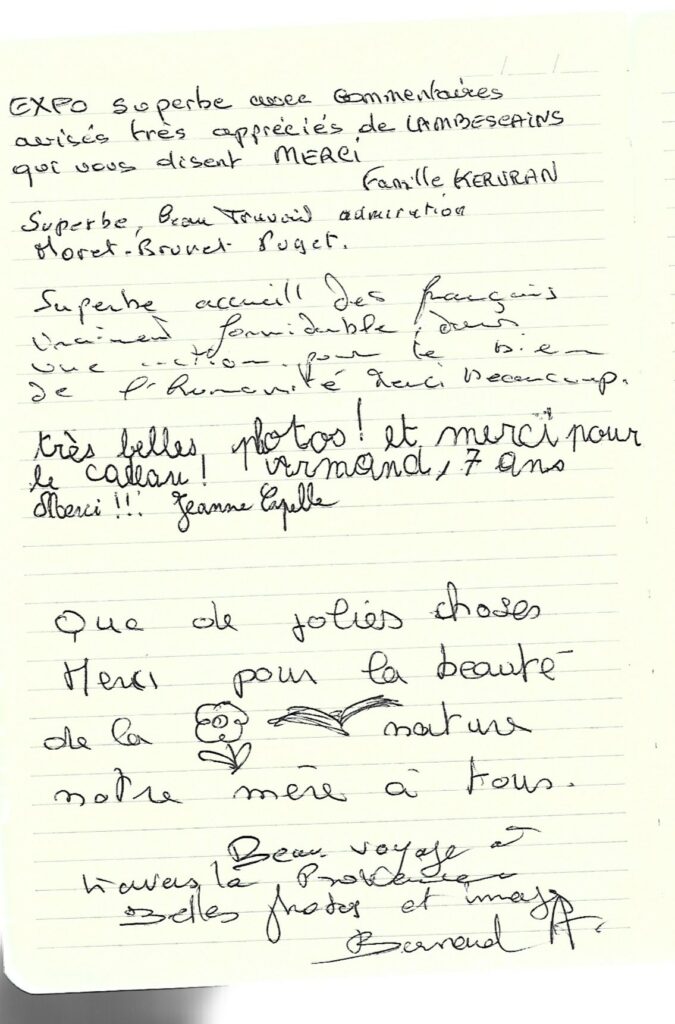 EXPO superbe avec commentaires
avisés très appréciés de LAMBESCAINS
qui vous disent MERCI
Famille KERVRAN
Superbe, Beau Travail admiration
Moret-Brunet Puget.
Superbe accueill des français
vraiment formidable, dans
une action pour le bien
de l'humanité Merci Beaucoup.
très belles photos! et merci pour
le cadeau! 7 ans
Merci!!! Jeanne Capelle
Que de jolies choses
Merci pour la beauté
de la nature
notre mère à tous.
Beau voyage à
travers la Provence
Belles photos et images
Bernard